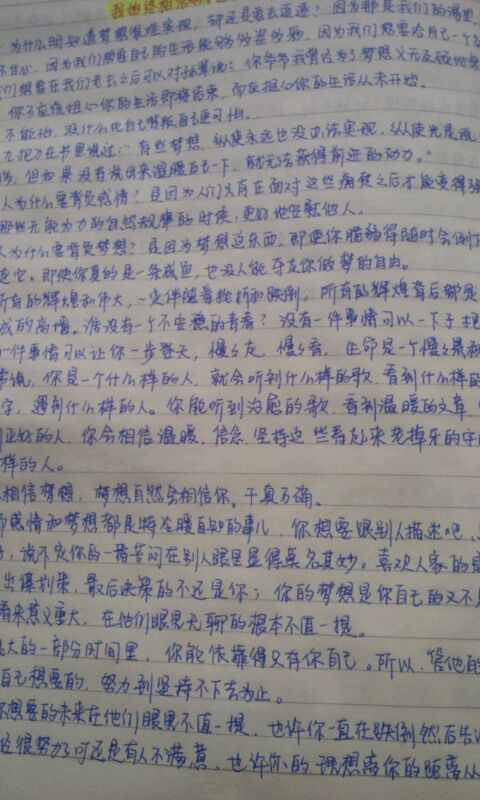 我也终相信
为什么明知道梦想很难实现，却还是要去追逐？因为那是我们的渴望，
不甘心，因为我们想要自己的生活能够多姿多彩，因为我们想要给自己一个
们想要在我们老去之后可以对孙辈说：你爷爷我曾经为了梦想义无反顾地
你不应该担心你的生活即将结束，而应担心你的生活从未开始。
不能怕，没什么比自己背叛自己更可怕。
九把刀在书里说过：“有些梦想，纵使永远也没办法实现，纵使光是说
，但如果没有说出来温暖自己一下，就无法获得前进的动力。”
人为什么要背负感情？是因为人们只有在面对这些痛楚之后才能变得强
那些无能为力的自然规律的时候，更好地安慰他人。
人为什么要背负梦想？是因为梦想这东西，即使你脆弱得随时会倒下
走它。即使你真的是一条咸鱼，也没人能夺走你做梦的自由。
所有的辉煌和伟大，一定伴随着挫折和跌倒，所有的辉煌背后都是
成的高墙。谁没有一个不安稳的青春？没有一件事情可以一下子把
一件事情可以让你一步登天，慢慢走，慢慢看，生命是一个慢慢累积
常说，你是一个什么样的人，就会听到什么样的歌，看到什么样的
字，遇到什么样的人。你能听到治愈的歌，看到温暖的文章，
到正好的人，你会相信温暖，信念，坚持这些看起来老掉牙的字
样的人。
相信梦想，梦想自然会相信你。千真万确。
而感情和梦想都是特冷暖自知的事儿，你想要跟别人描述吧，
，说不定你的一番苦闷在别人眼里显得莫名其妙。喜欢人家的是
出谋划策，最后决策的不还是你；你的梦想是你自己的又不是
看来意义重大，在他们眼里无聊的根本不值一提。
大的一部分时间里，你能依靠得只有你自己。所以，管他的
自己想要的，努力到坚持不下去为止。
你想要的未来在他们眼里不值一提，也许你一直在跌倒然后告诉
经很努力了可还是有人不满意，也许你的理想离你的距离从